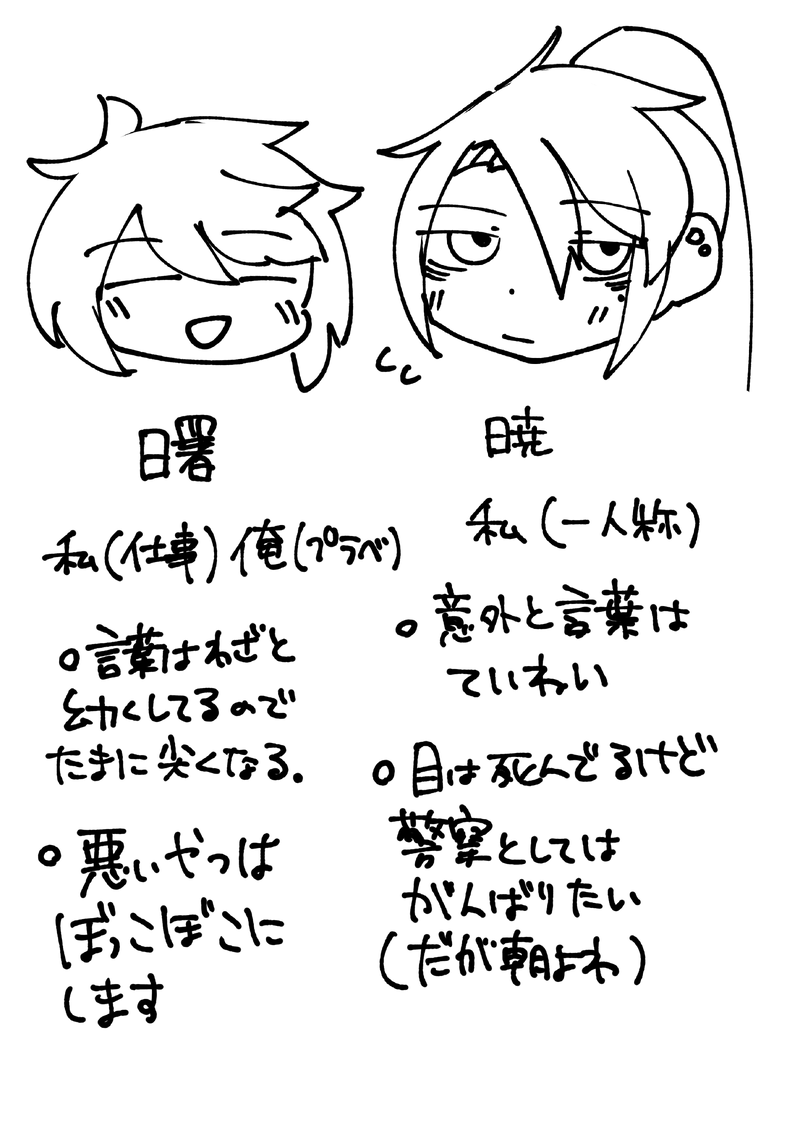 曙
私(仕事) 俺(プラベ)
○言葉はわざと
幼くしてるので
たまに尖くなる。
○悪いやつは
ぼっこぼこに
します
暁
私(一人称)
○意外と言葉は
ていねい
○目は死んでるけど
警察としては
がんばりたい
(だが朝よわ)